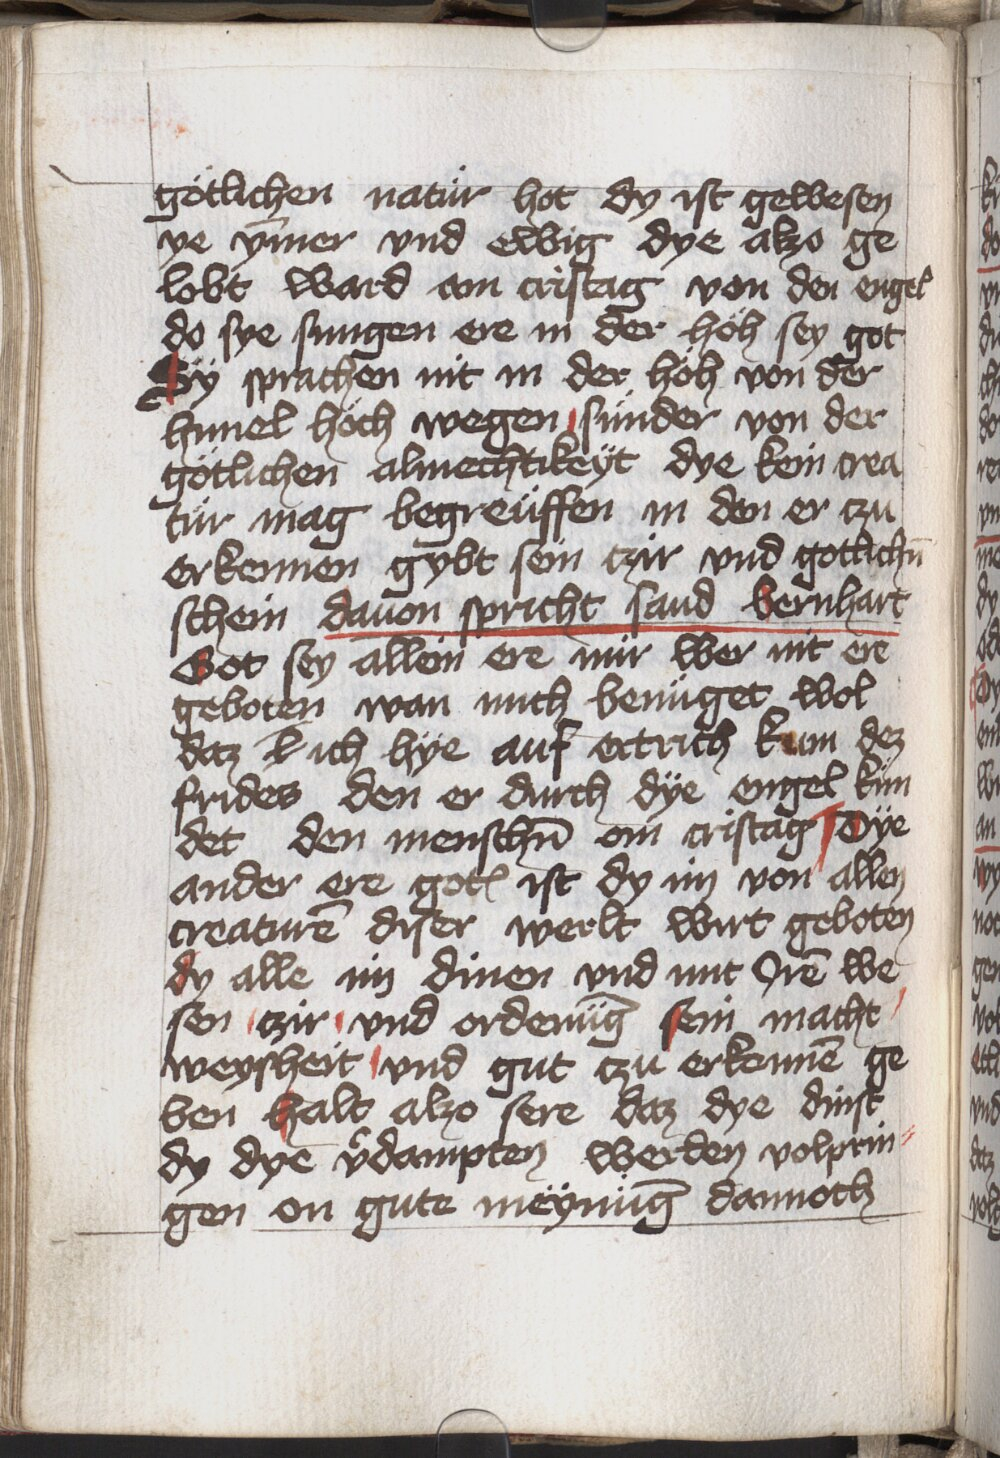 götlichen natür hot dy ist gewesen
ye ym̄er vnd ewig dye alzo ge
lobt ward am cristag von den engel
do sye sungen ere in der höh sey got
Sÿ sprachen nit in der höh von der
himel höch wegen sünder von der
götlichen almechtikeÿt dye kein crea
tür mag begreüffen in den er czu
erkennen gybt sein czir vnd gotlichn̄
schein dauon spricht sand bernhart
Got sey allein ere mir wer nit ere
geboten wan mich benüget wol
daz ich hÿe auf ertrich kum dez
frides den er durch dÿe engel kün
det den menschn̄ am cristag Dÿe
ander ere gotz ist dy im von allen
creaturē diser werlt wirt geboten
dy alle im dinen vnd mit irē we
sen czir vnd ordenūg sein macht
weysheit vnd gut czu erkennē ge
ben halt alzo sere daz dye dinst
dy dye v̾dampten werden volprin
gen on gute meÿnūg dannoch